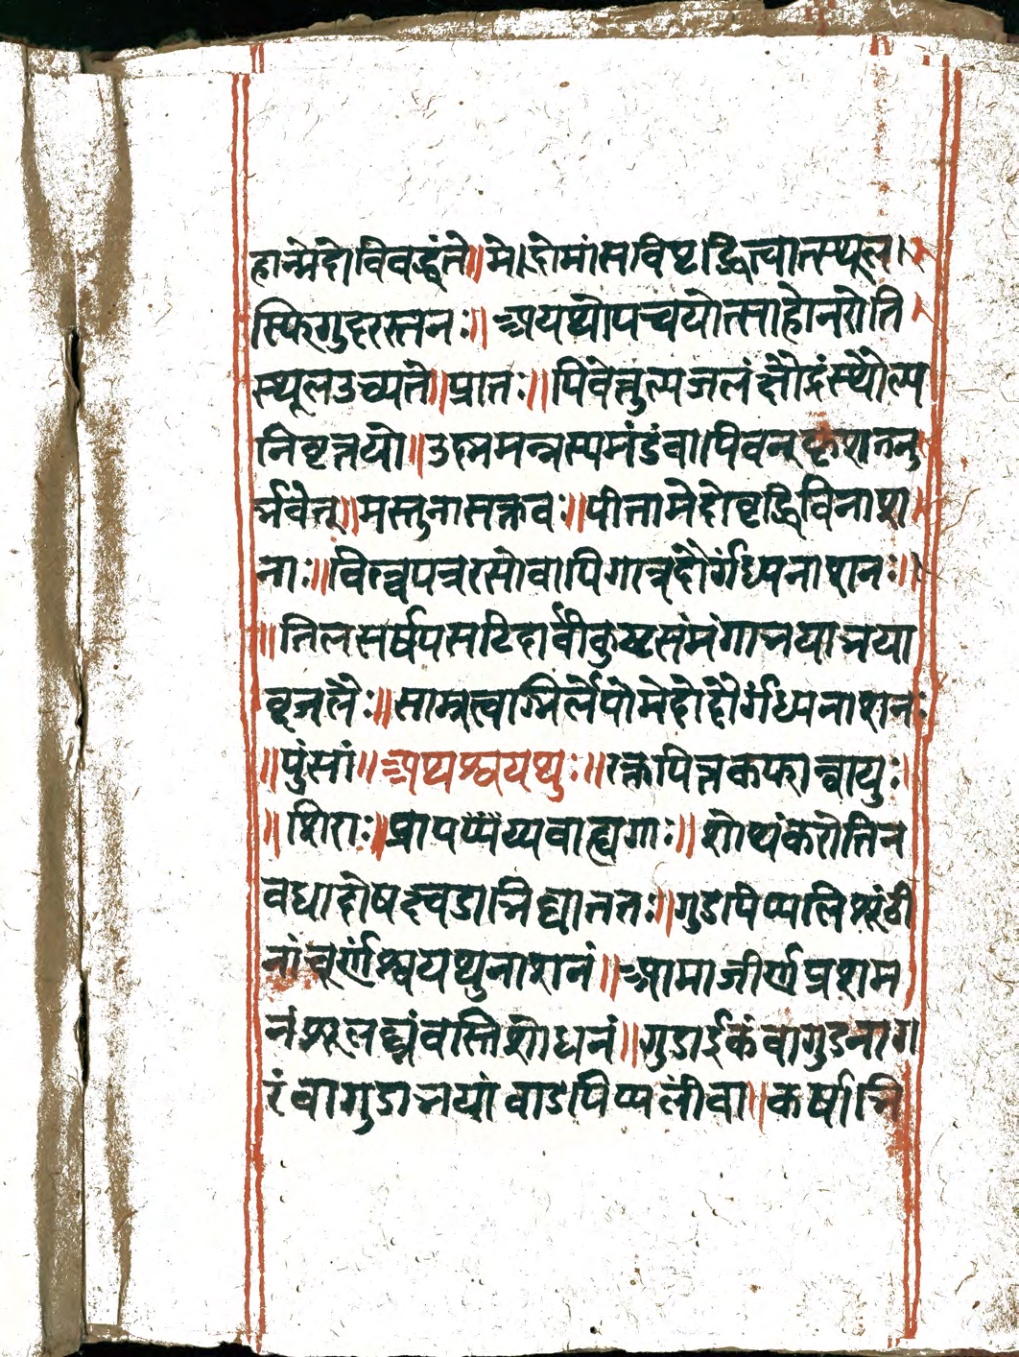 हान्मेदोविवर्द्धते॥मेदोमांसविवृद्धित्वात्स्थूल।
स्फिगुदरस्तनः॥अयथोपचयोत्साहोनरोति
स्थूलउच्यते॥प्रातः॥पिवेत्तुल्यजलंक्षौद्रंस्थौल्य
निवृत्तये॥उष्नमन्नस्यमंडंवापिवन्कृशतनु
र्भवेत्॥मस्तुनासक्तवः॥पीतामेदोवृद्धिविनाश
नाः॥विल्वपत्ररसोवापिगात्रदौर्गंध्यनाशनः॥
॥तिलसर्षपसटिदार्वीकुष्टसमंगाभयाभया
वृजलैः॥साम्रत्वाग्भिर्लेपोमेदोदौर्गंध्यनाशनः
॥पुंसां॥अथश्वयथुः॥रक्तपित्तकफान्वायुः
॥शिराः॥प्राप्य वाह्यगाः॥शोथंकरोतिन
वधादोषक्ष्वडाभिघाततः॥गुडापिप्पलिशुंठी
नांचूर्णंश्वयथुनाशनं॥आमाजीर्णप्रशम
नंशूलघ्नंवस्तिशोधनं॥गुडार्द्रकंवागुडनाग
रंवागुडाभयांवाडपिप्पलीवा॥कर्षाभि